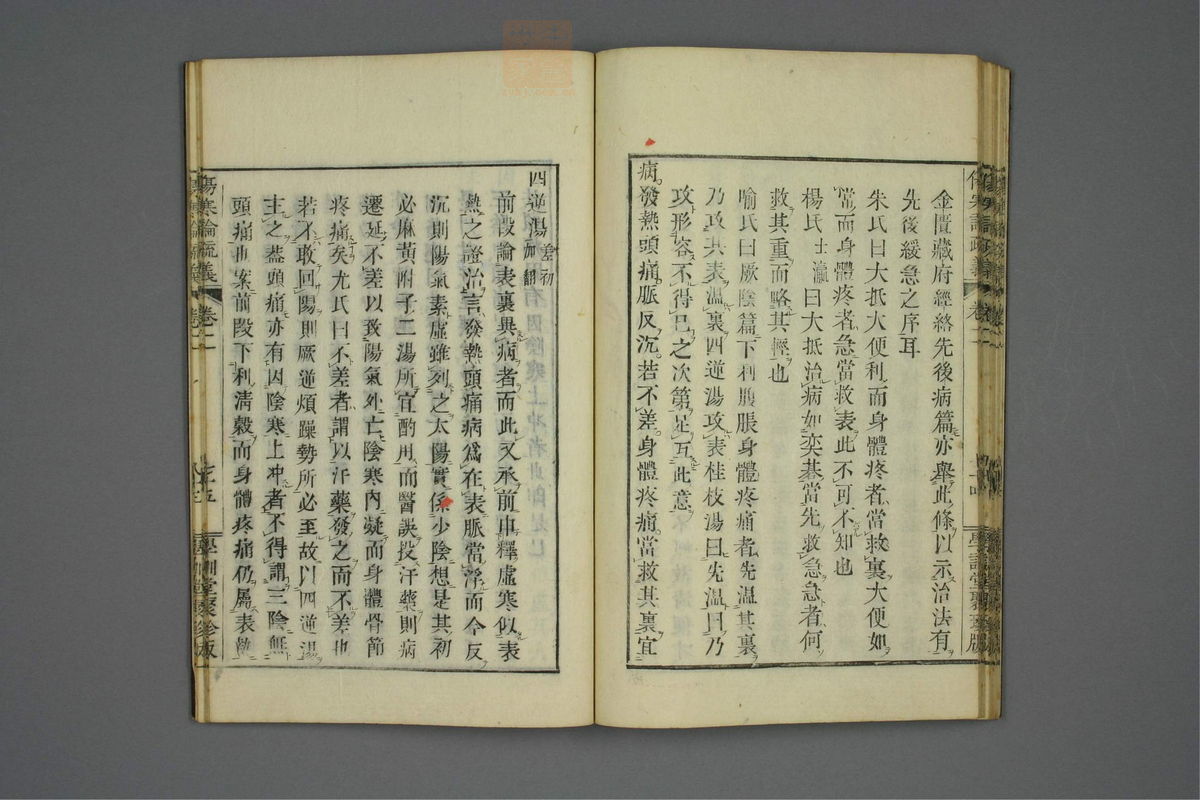 金匱藏府經絡先後病篇亦舉此條以示治法有
先後緩急之序耳
朱氏曰大抵大便利而身體疼者當救裏大便如
常而身體疼者急當救表此不可不知也
楊氏士瀛曰大抵治病如奕碁當先救急急者何
救其重而略其輕也
喻氏曰厥陰篇下利腹脹身體疼痛者先溫其裏
乃攻其表溫裏四逆湯攻表桂枝湯曰先溫曰乃
攻形容不得已之次第足互此意
病發熱頭痛脈反沉若不差身體疼痛當救其裏宜
四逆湯差初加翻
前段論表裏異病者而此又承前申釋虛寒似表
熱之證治言發熱頭痛病爲在表脈當浮而今反
沉則陽氣素虛雖列之太陽實係少陰想是其初
必麻黃附子二湯所宜酌用而醫誤投汗藥則病
遷延不差以致陽氣外亡陰寒內凝而身體骨節
疼痛矣尤氏曰不差者謂以汗藥發之而不差也
若不敢回陽則厥逆煩躁勢所必至故以四逆湯
主之蓋頭痛亦有因陰寒上冲者不得謂三陰無
頭痛也案前段下利淸穀而身體疼痛仍屬表
傷寒論疏義 卷二
學訓堂聚珍版